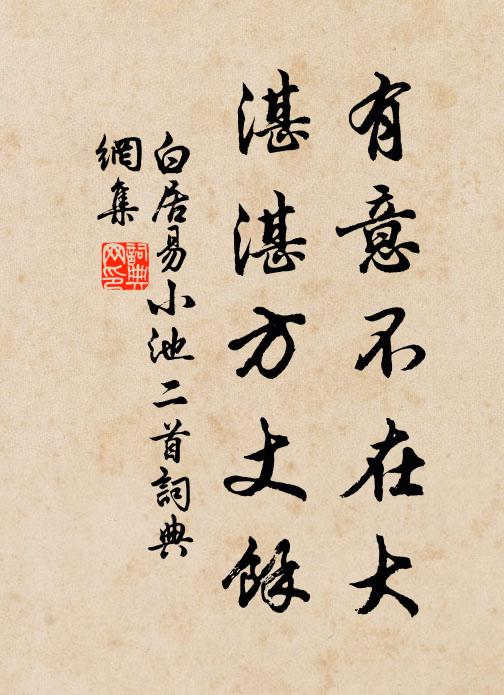 有意不在大
湛湛方丈餘
白居易小池二首詞典
網集
詞典
网印